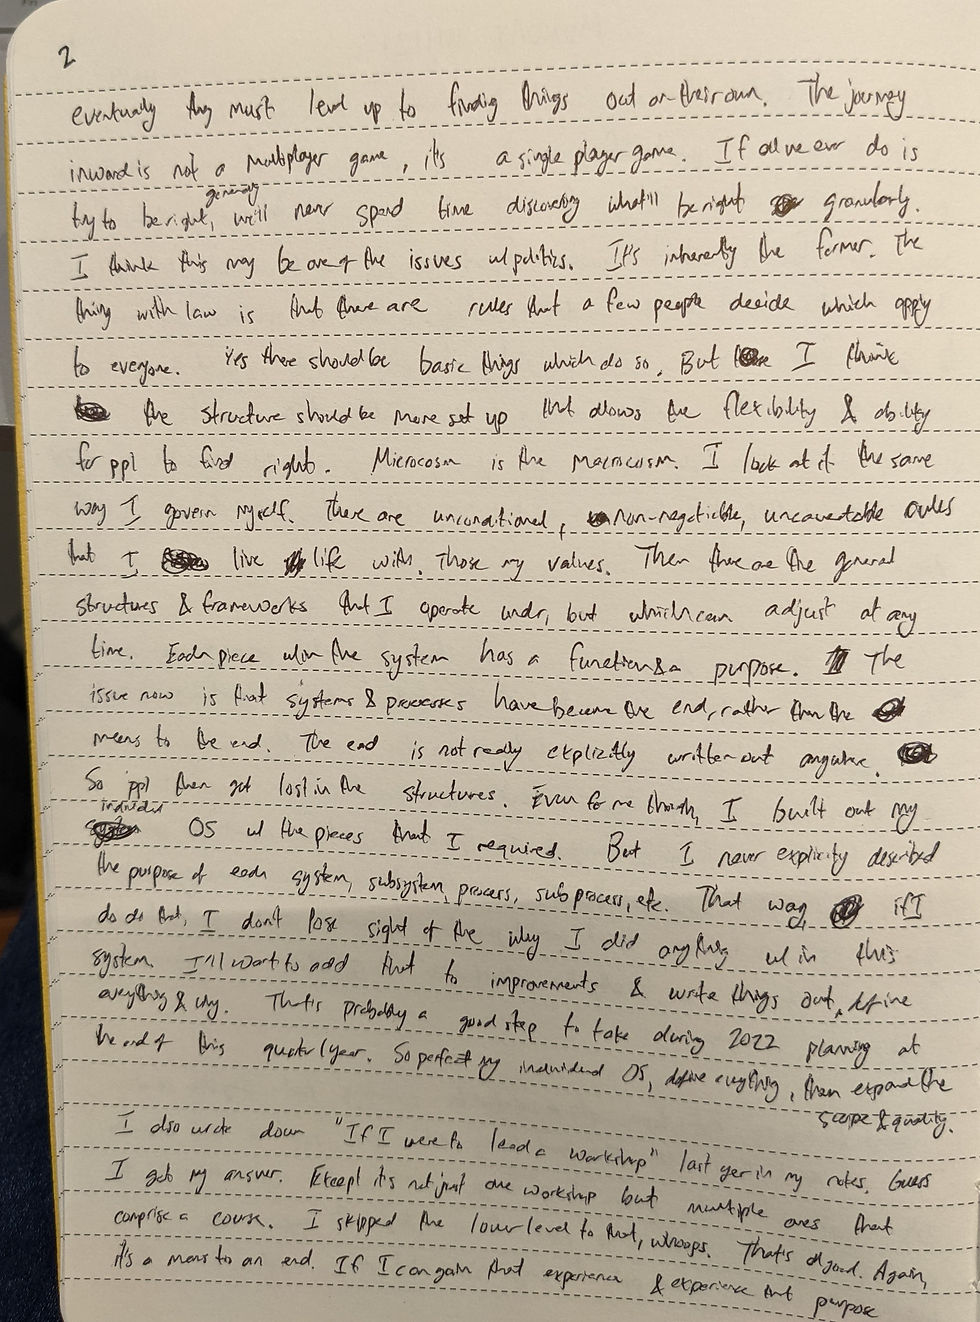 2
eventually they must level up to finding things out on their own. The journey
inward is not a multiplayer game, it's a single player game. If all we ever do is
generally
try to be right, we'll never spend time discovering what'll be right granularly.
I think this may be one of the issues w/ politics. It's inherently the former. The
thing with law is that there are rules that a few people decide which apply
to everyone. Yes there should be basic things which do so. But I think
the structure should be more set up that allows the flexibility & ability
for ppl to find right. Microcosm is the macrocosm. I look at it the same
way I govern myself. There are unconditional, non-negotiable, rules
that I live life with. Those my values. Then there are the general
structures & frameworks that I operate under, but which can adjust at any
time. Each piece w/in the system has a function & a purpose. The
issue now is that systems & processes have become the end, rather than the
means to the end. The end is not really explicitly written out anywhere.
So ppl then get lost in the structures. Even for me though, I built out my
individual
OS w/ the pieces that I required. But I never explicitly described
the purpose of each system, subsystem, process, subprocess, etc. That way, if I
do do that, I don't lose sight of the why I did anything w/in this
system. I'll want to add that to improvements & write things out, define
everything & why. That's probably a good step to take during 2022 planning at
the end of this quarter/year. So perfect my individual OS, define everything, then expand the
scope & quality.
I also wrote down "If I were to lead a workshop" last year in my notes. Guess
I got my answer. Except it's not just one workshop but multiple ones that
comprise a course. I skipped the lower level to that, whoops. That's all good. Again,
it's a means to an end. If I can gain that experience & experience that purpose